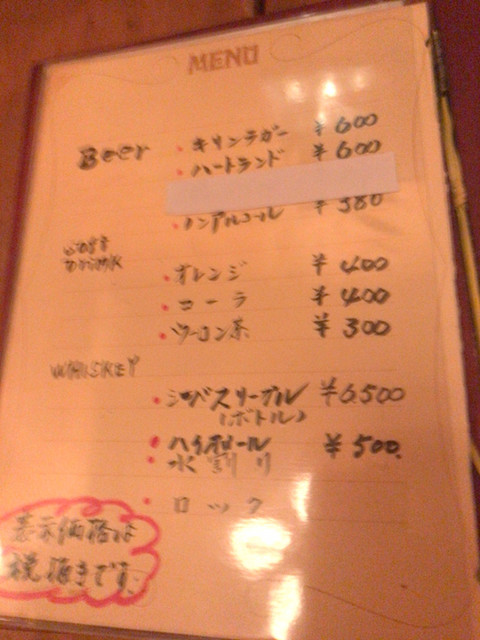 MENU
Beer
・キリンラガー ¥600
・ハートランド ¥600
・ノンアルコール ¥380
soft
Drink
・オレンジ ¥400
・コーラ ¥400
・ウーロン茶 ¥300
WHISKEY
・シーバスリーガル ¥6,500
(ボトル)
・ハイボール ¥500.
・水割り
・ロック
表示価格は
税抜きです。